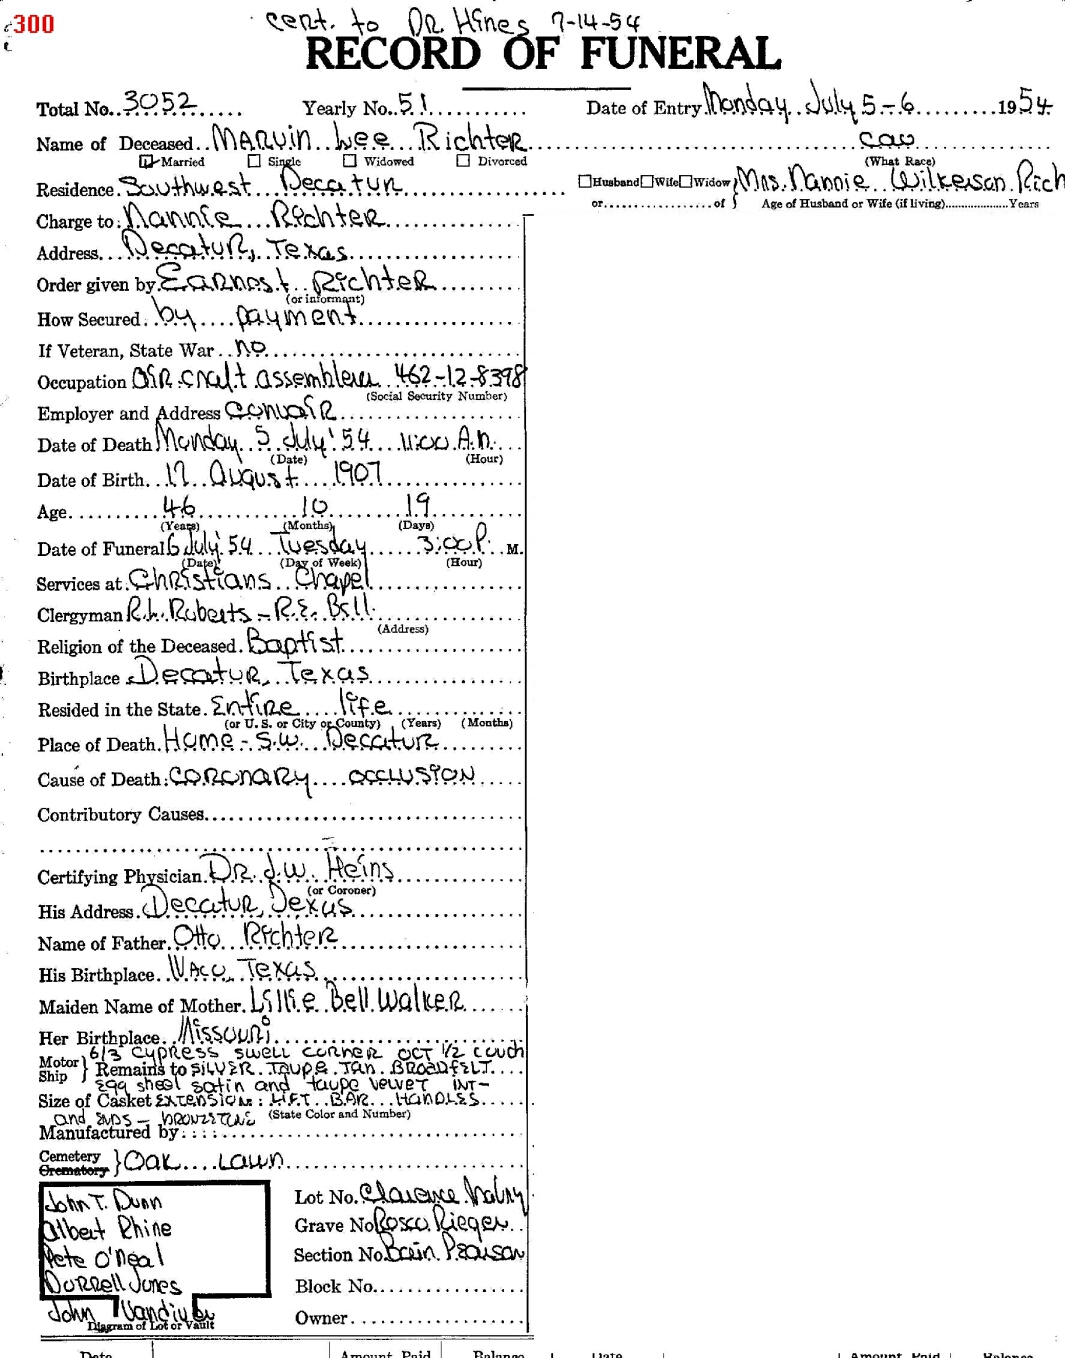 300
cent. to DR Hines 7-14-54
RECORD OF FUNERAL
Total No. 3052 Yearly No. 51 Date of Entry Monday July 5-6 1954
Name of Deceased Marvin Lee Richter cau
(What Race)
Married Single Widowed Divorced
Residence Southwest Decatur Husband Wife Widow Mrs. Nannie Wilkerson Rich
or of Age of Husband or Wife (if living) Years
Charge to Nannie Richter
Address Decatur, Texas
Order given by Earnest Richter
(or informant)
How Secured by payment
If Veteran, State War no
Occupation air craft assembler 462-12-8398
(Social Security Number)
Employer and Address Convair
Date of Death Monday 5 July '54 11:00 A.M.
(Date) (Hour)
Date of Birth 17 August 1907
Age 46 10 19
(Years) (Months) (Days)
Date of Funeral 6 July '54 Tuesday 3:00 P. M.
(Date) (Day of Week) (Hour)
Services at Christians Chapel
Clergyman R.L. Roberts - R.E. Bell
(Address)
Religion of the Deceased Baptist
Birthplace Decatur, Texas
Resided in the State Entire life
(or U. S. or City or County) (Years) (Months)
Place of Death Home - S.W. Decatur
Cause of Death coronary occlusion
Contributory Causes
Certifying Physician Dr. J.W. Heins
(or Coroner)
His Address Decatur, Texas
Name of Father Otto Richter
His Birthplace Waco, Texas
Maiden Name of Mother Lillie Bell Walker
Her Birthplace Missouri
6/3 cypress swell corner oct 1/2 couch
Motor Ship Remains to silver taupe tan broadfelt
egg shell satin and taupe velvet int-
Size of Casket extension: lift bar handles
and ends - bronzetone (State Color and Number)
Manufactured by
Cemetery Crematory Oak Lawn
John T. Dunn
Albert Rhine
Pete O'Neal
Durrell Jones
John Vandiver
Diagram of Lot or Vault
Lot No. Clarence
Grave No. Rosco Rieger
Section No. Pearson
Block No.
Owner
Date Amount Paid Balance Date Amount Paid Balance